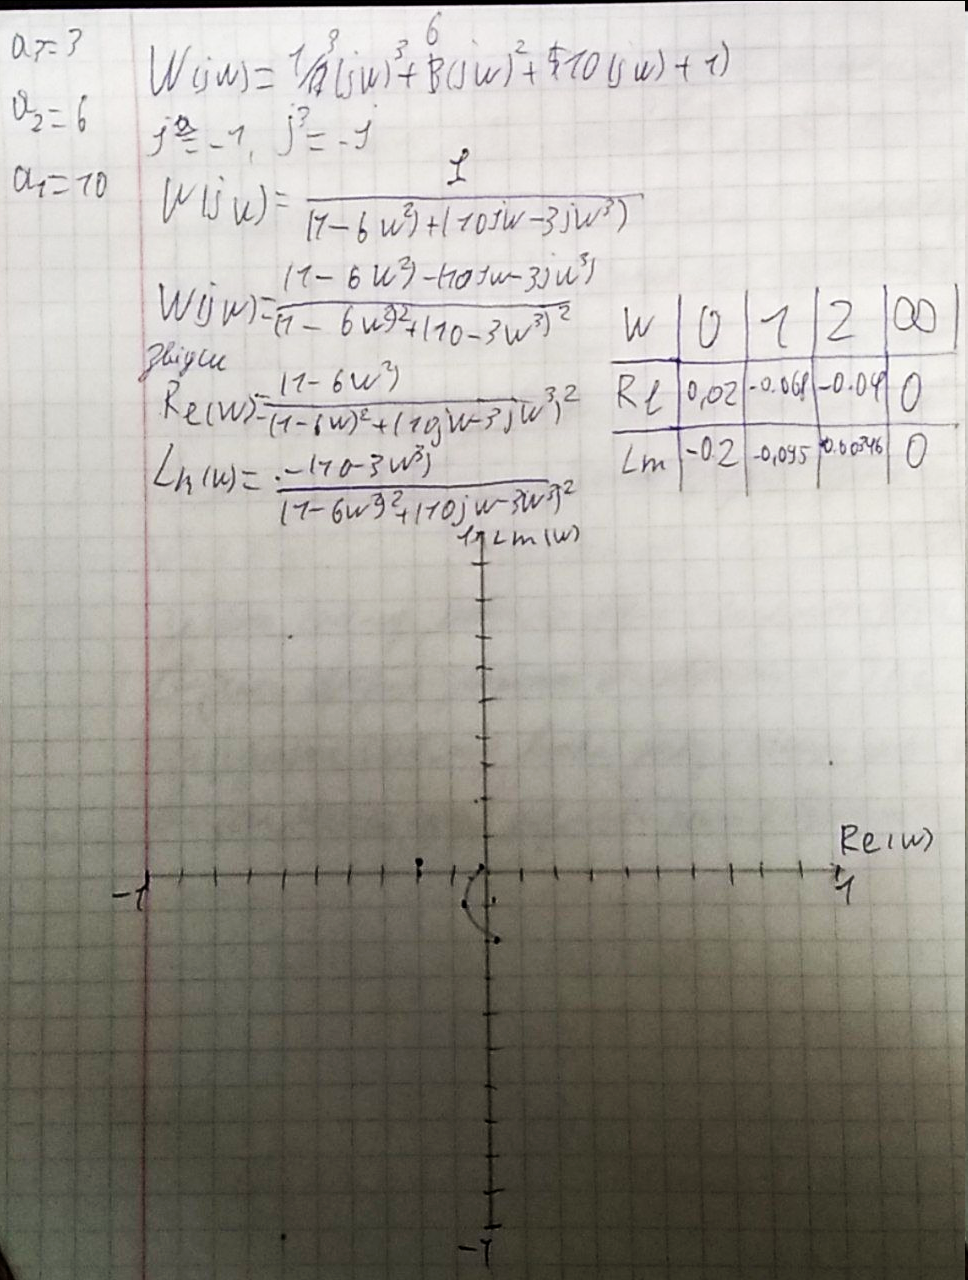 a₃=3
W(jw)= 1/(3(jw)³+6(jw)²+10(jw)+1)
a₂=6
j²=-1, j³=-j
a₁=10
W(jw)= 1/((1-6w²)+(10jw-3jw³))
W(jw)= ((1-6w²)-(10jw-3jw³))/((1-6w²)²+(10-3w³)²)
Звідси
Re(w)= (1-6w²)/((1-6w)²+(10jw-3jw³)²)
Lm(w)= -(10-3w³)/((1-6w²)²+(10jw-3w³)²)
W | 0 | 1 | 2 | ∞
Re | 0,02 | -0.068 | -0.04 | 0
Lm | -0.2 | -0,095 | 0.00346 | 0
1 Lm(w)
Re(w)
-1 1
-1